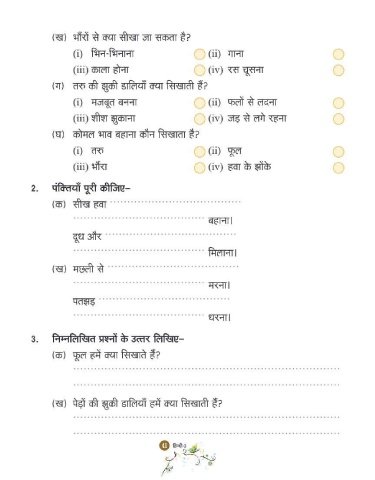 (ख) भौंरों से क्या सीखा जा सकता है?
(i) भिन-भिनाना (ii) गाना
(iii) काला होना (iv) रस चूसना
(ग) तरु की झुकी डालियाँ क्या सिखाती हैं?
(i) मजबूत बनना (ii) फलों से लदना
(iii) शीश झुकाना (iv) जड़ से लगे रहना
(घ) कोमल भाव बहाना कौन सिखाता है?
(i) तरु (ii) फूल
(iii) भौंरा (iv) हवा के झोंके
2. पंक्तियाँ पूरी कीजिए–
(क) सीख हवा
बहाना।
दूध और
मिलाना।
(ख) मछली से
मरना।
पतझड़
धरना।
3. निम्नलिखित प्रश्नों के उत्तर लिखिए–
(क) फूल हमें क्या सिखाते हैं?
(ख) पेड़ों की झुकी डालियाँ हमें क्या सिखाती हैं?